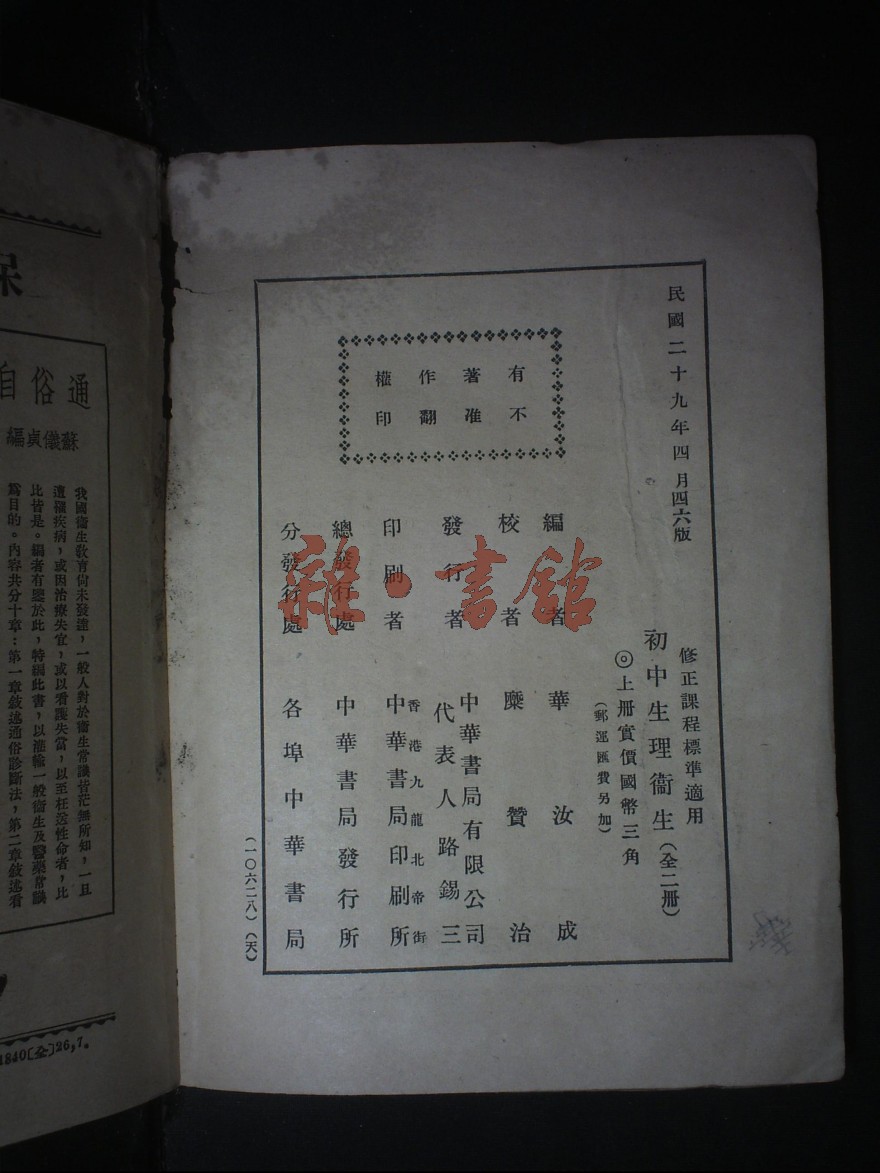 民國二十九年四月四六版
修正課程標準適用
初中生理衞生(全二册)
◎上册實價國幣三角
(郵運匯費另加)
有著作權
不准翻印
編者 華汝成
校者 糜贊治
發行者 中華書局有限公司
代表人路錫三
印刷者 香港九龍北帝街
中華書局印刷所
總發行處 中華書局發行所
分發行處 各埠中華書局
(一〇六二八)(天)
雜·書館
通俗自
蘇儀貞編
我國衞生敎育尙未發達,一般人對於衞生常識皆茫無所知,一旦
遭罹疾病,或因治療失宜,或以看護失當,以至枉送性命者,比
比皆是。編者有鑒於此,特編此書,以灌輸一般衞生及醫藥常識
爲目的。內容共分十章:第一章敍述通俗診斷法,第二章敍述看
1840〔全〕26,7.